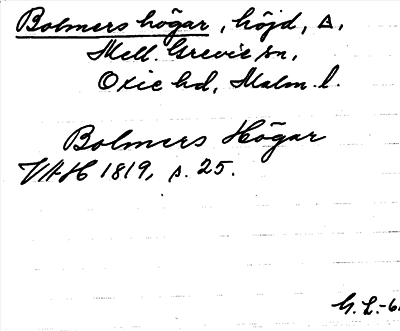 Bolmers högar, höjd, △.
Mell. Grevie sn,
Oxie hd, Malm. l.
Bolmers Högar
VAH 1819, s. 25.
G. L.-6